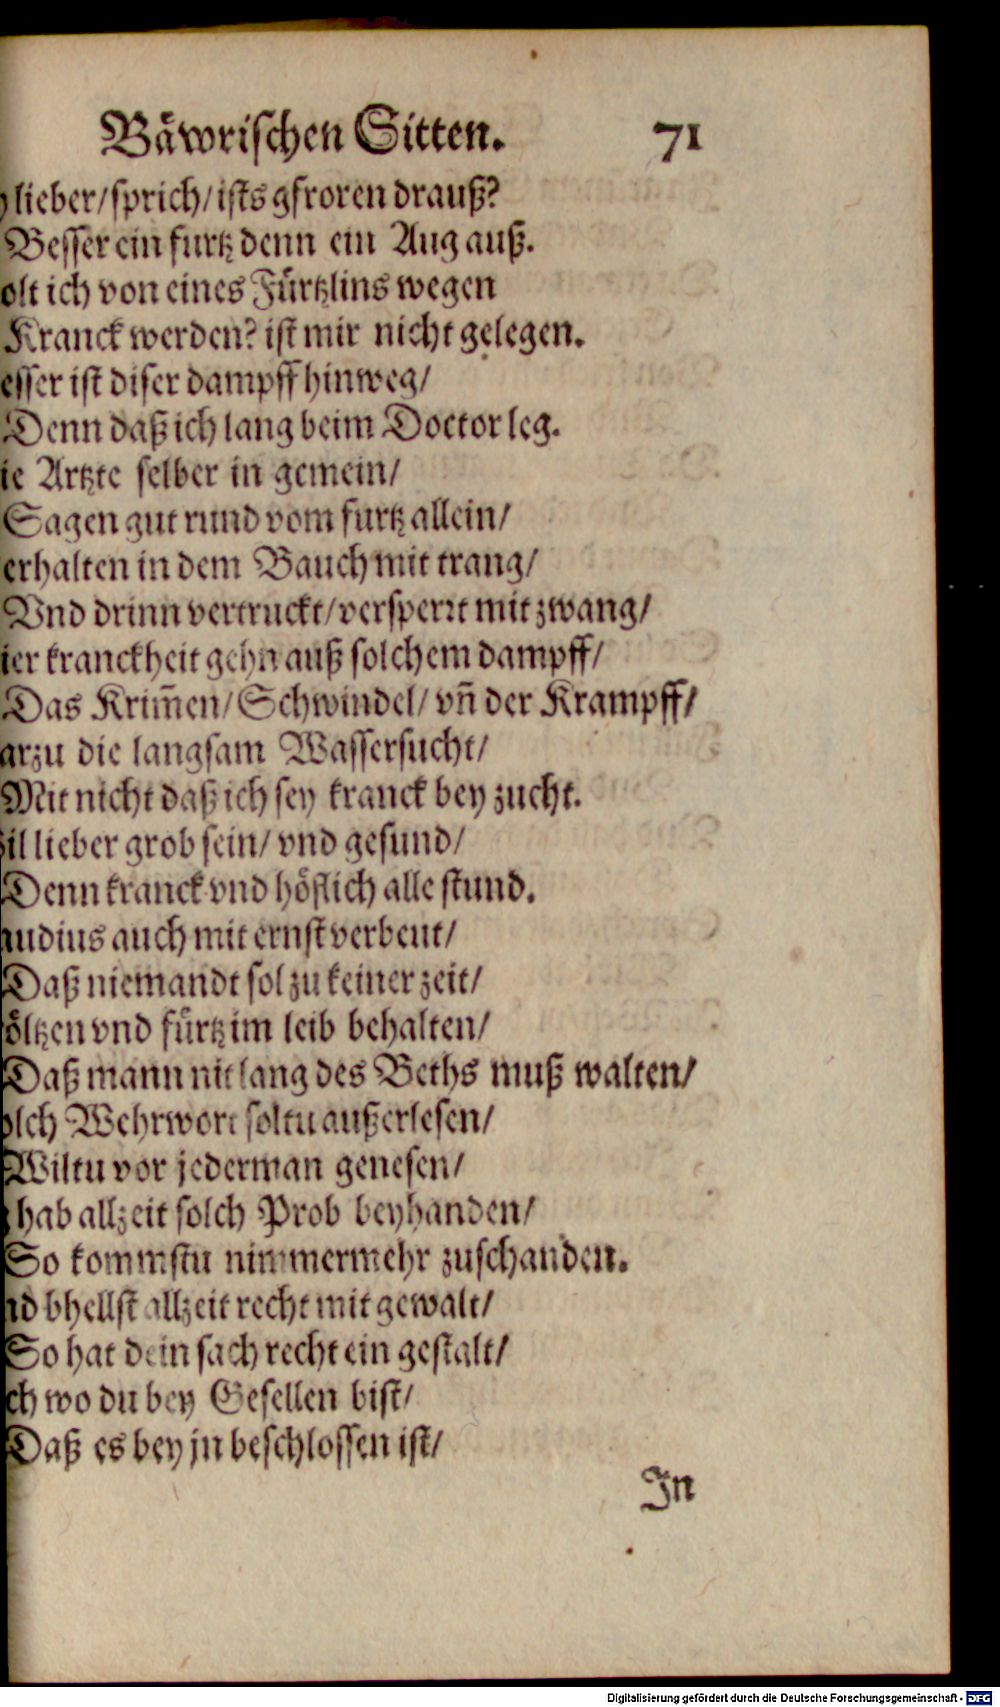 Bäwrischen Sitten. 71
lieber/ sprich/ ists gfroren drauß?
Besser ein furtz denn ein Aug auß.
olt ich von eines Fürtzlins wegen
Kranck werden? ist mir nicht gelegen.
esser ist diser dampff hinweg/
Denn daß ich lang beim Doctor leg.
ie Artzte selber in gemein/
Sagen gut rund vom furtz allein/
erhalten in dem Bauch mit trang/
Vnd drinn vertruckt/ versperrt mit zwang/
ier kranckheit gehn auß solchem dampff/
Das Krim̃en/ Schwindel/ vñ der Krampff/
arzu die langsam Wassersucht/
Mit nicht daß ich sey kranck bey zucht.
il lieber grob sein/ vnd gesund/
Denn kranck vnd höflich alle stund.
audius auch mit ernst verbeut/
Daß niemandt sol zu keiner zeit/
öltzen vnd fürtz im leib behalten/
Daß mann nit lang des Beths muß walten/
olch Wehrwort soltu außerlesen/
Wiltu vor jederman genesen/
hab allzeit solch Prob beyhanden/
So kommstu nimmermehr zuschanden.
nd bhellst allzeit recht mit gewalt/
So hat dein sach recht ein gestalt/
ch wo du bey Gesellen bist/
Daß es bey jn beschlossen ist/
In
Digitalisierung gefördert durch die Deutsche Forschungsgemeinschaft - DFG